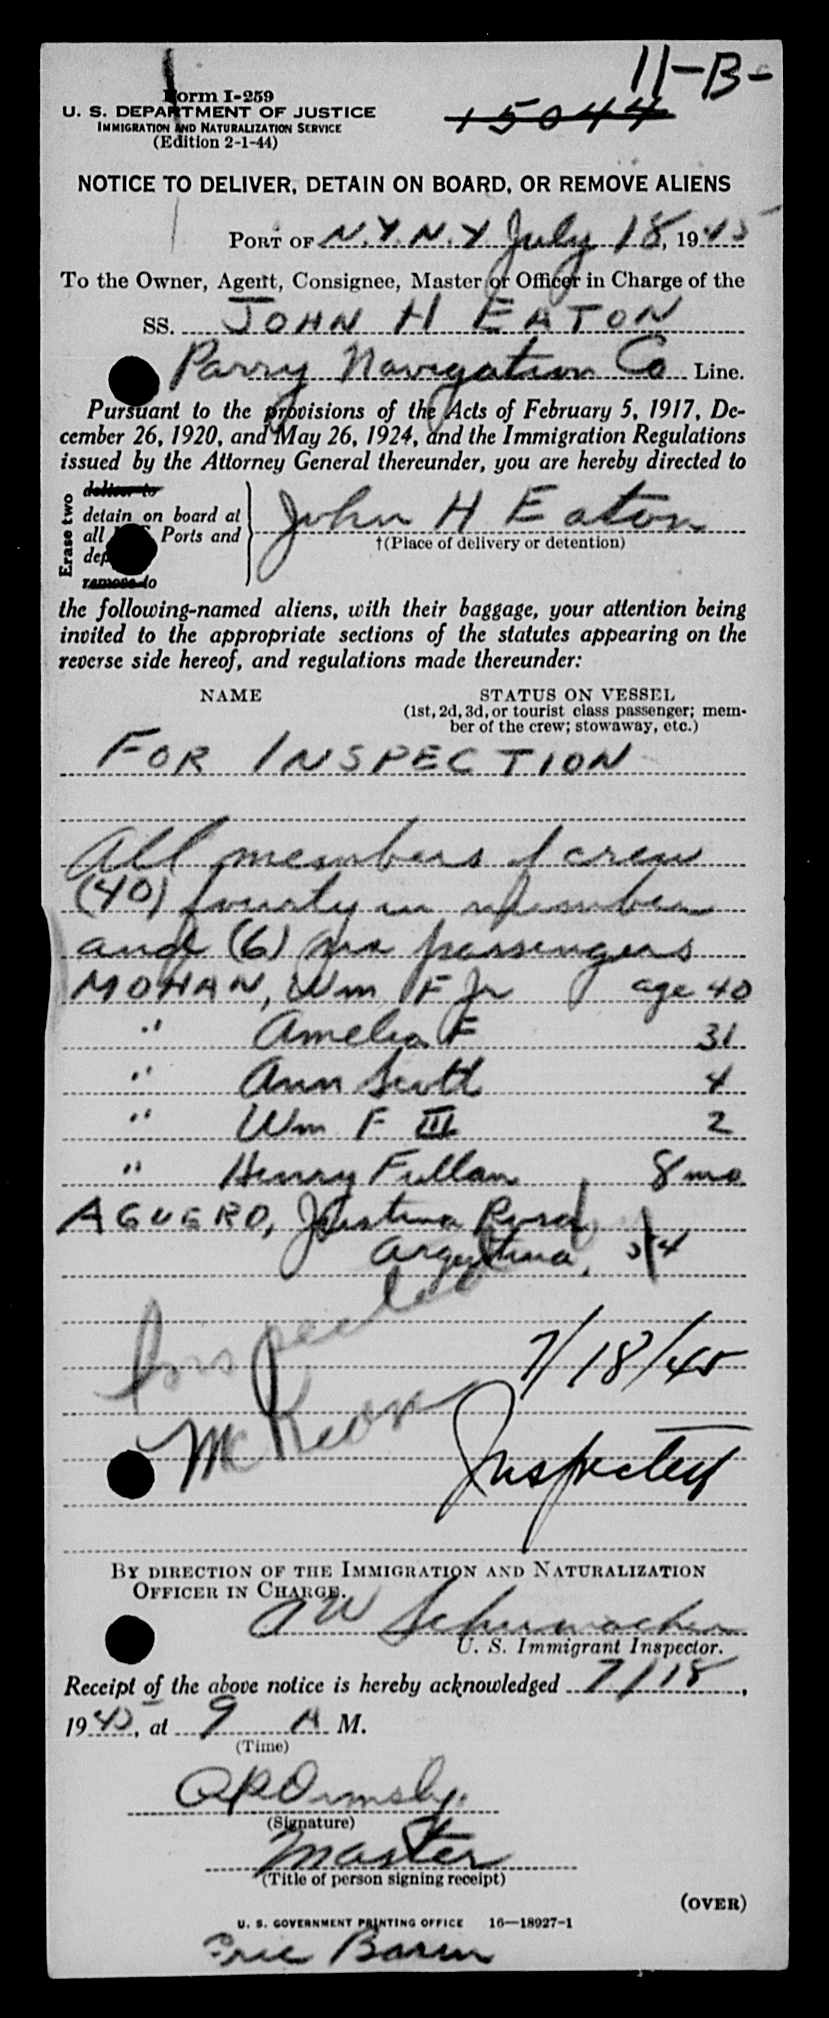 11-B-
15044
Form I-259
U. S. DEPARTMENT OF JUSTICE
IMMIGRATION AND NATURALIZATION SERVICE
(Edition 2-1-44)
NOTICE TO DELIVER, DETAIN ON BOARD, OR REMOVE ALIENS
PORT OF N.Y.N.Y July 18, 1945
To the Owner, Agent, Consignee, Master or Officer in Charge of the
SS. JOHN H EATON
Parry Navigation Co Line.
Pursuant to the provisions of the Acts of February 5, 1917, De-
cember 26, 1920, and May 26, 1924, and the Immigration Regulations
issued by the Attorney General thereunder, you are hereby directed to
Erase two
deliver to
detain on board at
all Ports and
John H Eaton
†(Place of delivery or detention)
remove to
the following-named aliens, with their baggage, your attention being
invited to the appropriate sections of the statutes appearing on the
reverse side hereof, and regulations made thereunder:
NAME STATUS ON VESSEL
(1st, 2d, 3d, or tourist class passenger; mem-
ber of the crew; stowaway, etc.)
FOR INSPECTION
All members of crew
(40) fourty in number
and (6) six passengers
MOHAN, Wm F Jr age 40
" Amelia F 31
" Ann Scott 4
" Wm F III 2
" Henry Fullan 8 mo
AGUERO, Justina Rosa
Argentina, 54
Inspected
7/18/45
McKeon
Inspected
BY DIRECTION OF THE IMMIGRATION AND NATURALIZATION
OFFICER IN CHARGE.
A W Schumacher
U. S. Immigrant Inspector.
Receipt of the above notice is hereby acknowledged 7/18,
1945, at 9 A M.
(Time)
Ormsby
(Signature)
Master
(Title of person signing receipt)
(OVER)
U. S. GOVERNMENT PRINTING OFFICE 16—18927-1